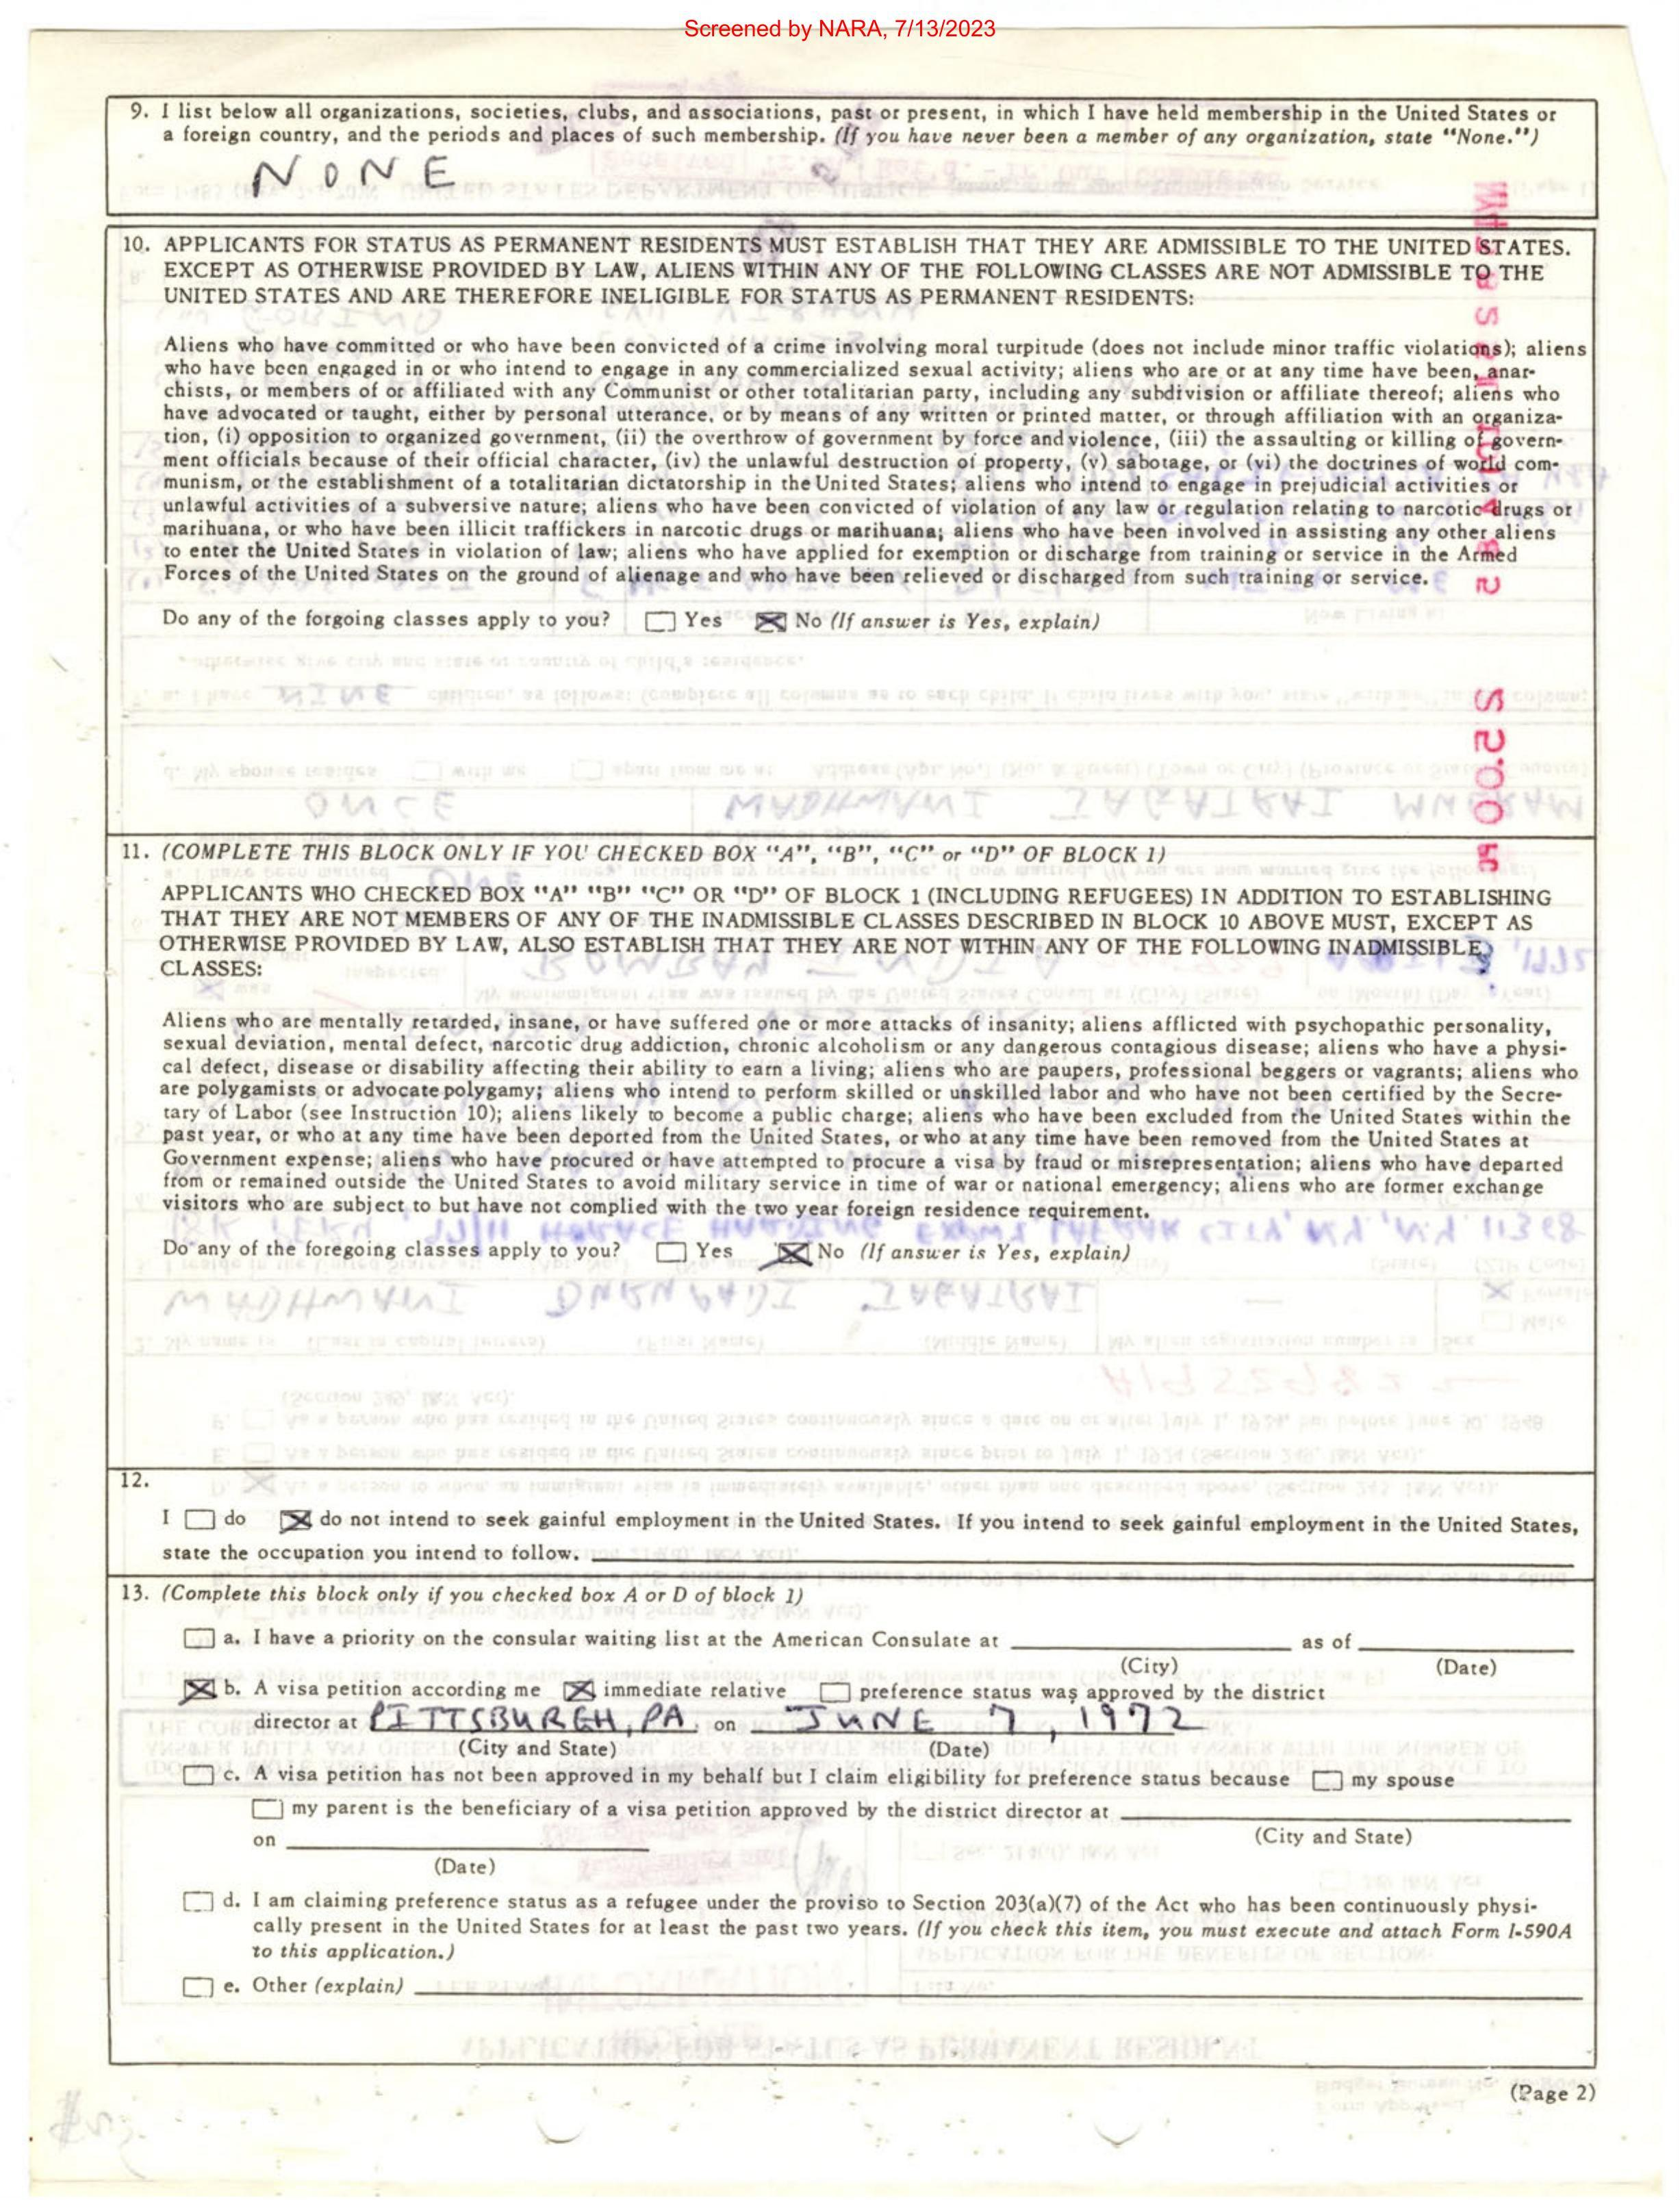 Screened by NARA, 7/13/2023
9. I list below all organizations, societies, clubs, and associations, past or present, in which I have held membership in the United States or
a foreign country, and the periods and places of such membership. (If you have never been a member of any organization, state “None.”)
NONE
10. APPLICANTS FOR STATUS AS PERMANENT RESIDENTS MUST ESTABLISH THAT THEY ARE ADMISSIBLE TO THE UNITED STATES.
EXCEPT AS OTHERWISE PROVIDED BY LAW, ALIENS WITHIN ANY OF THE FOLLOWING CLASSES ARE NOT ADMISSIBLE TO THE
UNITED STATES AND ARE THEREFORE INELIGIBLE FOR STATUS AS PERMANENT RESIDENTS:
Aliens who have committed or who have been convicted of a crime involving moral turpitude (does not include minor traffic violations); aliens
who have been engaged in or who intend to engage in any commercialized sexual activity; aliens who are or at any time have been, anar-
chists, or members of or affiliated with any Communist or other totalitarian party, including any subdivision or affiliate thereof; aliens who
have advocated or taught, either by personal utterance, or by means of any written or printed matter, or through affiliation with an organiza-
tion, (i) opposition to organized government, (ii) the overthrow of government by force and violence, (iii) the assaulting or killing of govern-
ment officials because of their official character, (iv) the unlawful destruction of property, (v) sabotage, or (vi) the doctrines of world com-
munism, or the establishment of a totalitarian dictatorship in the United States; aliens who intend to engage in prejudicial activities or
unlawful activities of a subversive nature; aliens who have been convicted of violation of any law or regulation relating to narcotic drugs or
marihuana, or who have been illicit traffickers in narcotic drugs or marihuana; aliens who have been involved in assisting any other aliens
to enter the United States in violation of law; aliens who have applied for exemption or discharge from training or service in the Armed
Forces of the United States on the ground of alienage and who have been relieved or discharged from such training or service.
Do any of the forgoing classes apply to you? Yes No (If answer is Yes, explain)
11. (COMPLETE THIS BLOCK ONLY IF YOU CHECKED BOX “A”, “B”, “C” or “D” OF BLOCK 1)
APPLICANTS WHO CHECKED BOX “A” “B” “C” OR “D” OF BLOCK 1 (INCLUDING REFUGEES) IN ADDITION TO ESTABLISHING
THAT THEY ARE NOT MEMBERS OF ANY OF THE INADMISSIBLE CLASSES DESCRIBED IN BLOCK 10 ABOVE MUST, EXCEPT AS
OTHERWISE PROVIDED BY LAW, ALSO ESTABLISH THAT THEY ARE NOT WITHIN ANY OF THE FOLLOWING INADMISSIBLE
CLASSES:
Aliens who are mentally retarded, insane, or have suffered one or more attacks of insanity; aliens afflicted with psychopathic personality,
sexual deviation, mental defect, narcotic drug addiction, chronic alcoholism or any dangerous contagious disease; aliens who have a physi-
cal defect, disease or disability affecting their ability to earn a living; aliens who are paupers, professional beggers or vagrants; aliens who
are polygamists or advocate polygamy; aliens who intend to perform skilled or unskilled labor and who have not been certified by the Secre-
tary of Labor (see Instruction 10); aliens likely to become a public charge; aliens who have been excluded from the United States within the
past year, or who at any time have been deported from the United States, or who at any time have been removed from the United States at
Government expense; aliens who have procured or have attempted to procure a visa by fraud or misrepresentation; aliens who have departed
from or remained outside the United States to avoid military service in time of war or national emergency; aliens who are former exchange
visitors who are subject to but have not complied with the two year foreign residence requirement.
Do any of the foregoing classes apply to you? Yes No (If answer is Yes, explain)
12.
I do do not intend to seek gainful employment in the United States. If you intend to seek gainful employment in the United States,
state the occupation you intend to follow.
13. (Complete this block only if you checked box A or D of block 1)
a. I have a priority on the consular waiting list at the American Consulate at as of
(City) (Date)
b. A visa petition according me immediate relative preference status was approved by the district
director at PITTSBURGH, PA. on JUNE 7, 1972
(City and State) (Date)
c. A visa petition has not been approved in my behalf but I claim eligibility for preference status because my spouse
my parent is the beneficiary of a visa petition approved by the district director at
on (City and State)
(Date)
d. I am claiming preference status as a refugee under the proviso to Section 203(a)(7) of the Act who has been continuously physi-
cally present in the United States for at least the past two years. (If you check this item, you must execute and attach Form I-590A
to this application.)
e. Other (explain)
(Page 2)